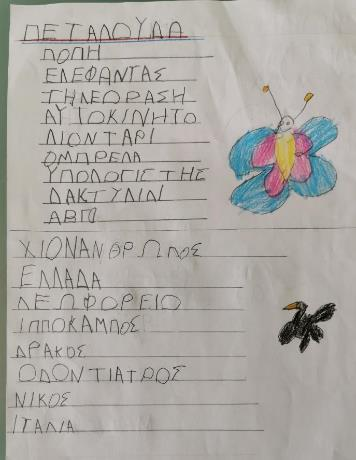 ΠΕΤΑΛΟΥΔΑ
ΠΟΠΗ
ΕΛΕΦΑΝΤΑΣ
ΤΗΛΕΟΡΑΣΗ
ΑΥΤΟΚΙΝΗΤΟ
ΛΙΟΝΤΑΡΙ
ΟΜΠΡΕΛΑ
ΥΠΟΛΟΓΙΣΤΗΣ
ΔΑΚΤΥΛΙΔΙ
ΑΒΓΟ
ΧΙΟΝΑΝΘΡΩΠΟΣ
ΕΛΛΑΔΑ
ΛΕΩΦΟΡΕΙΟ
ΙΠΠΟΚΑΜΠΟΣ
ΔΡΑΚΟΣ
ΟΔΟΝΤΙΑΤΡΟΣ
ΝΙΚΟΣ
ΙΤΑΛΙΑ